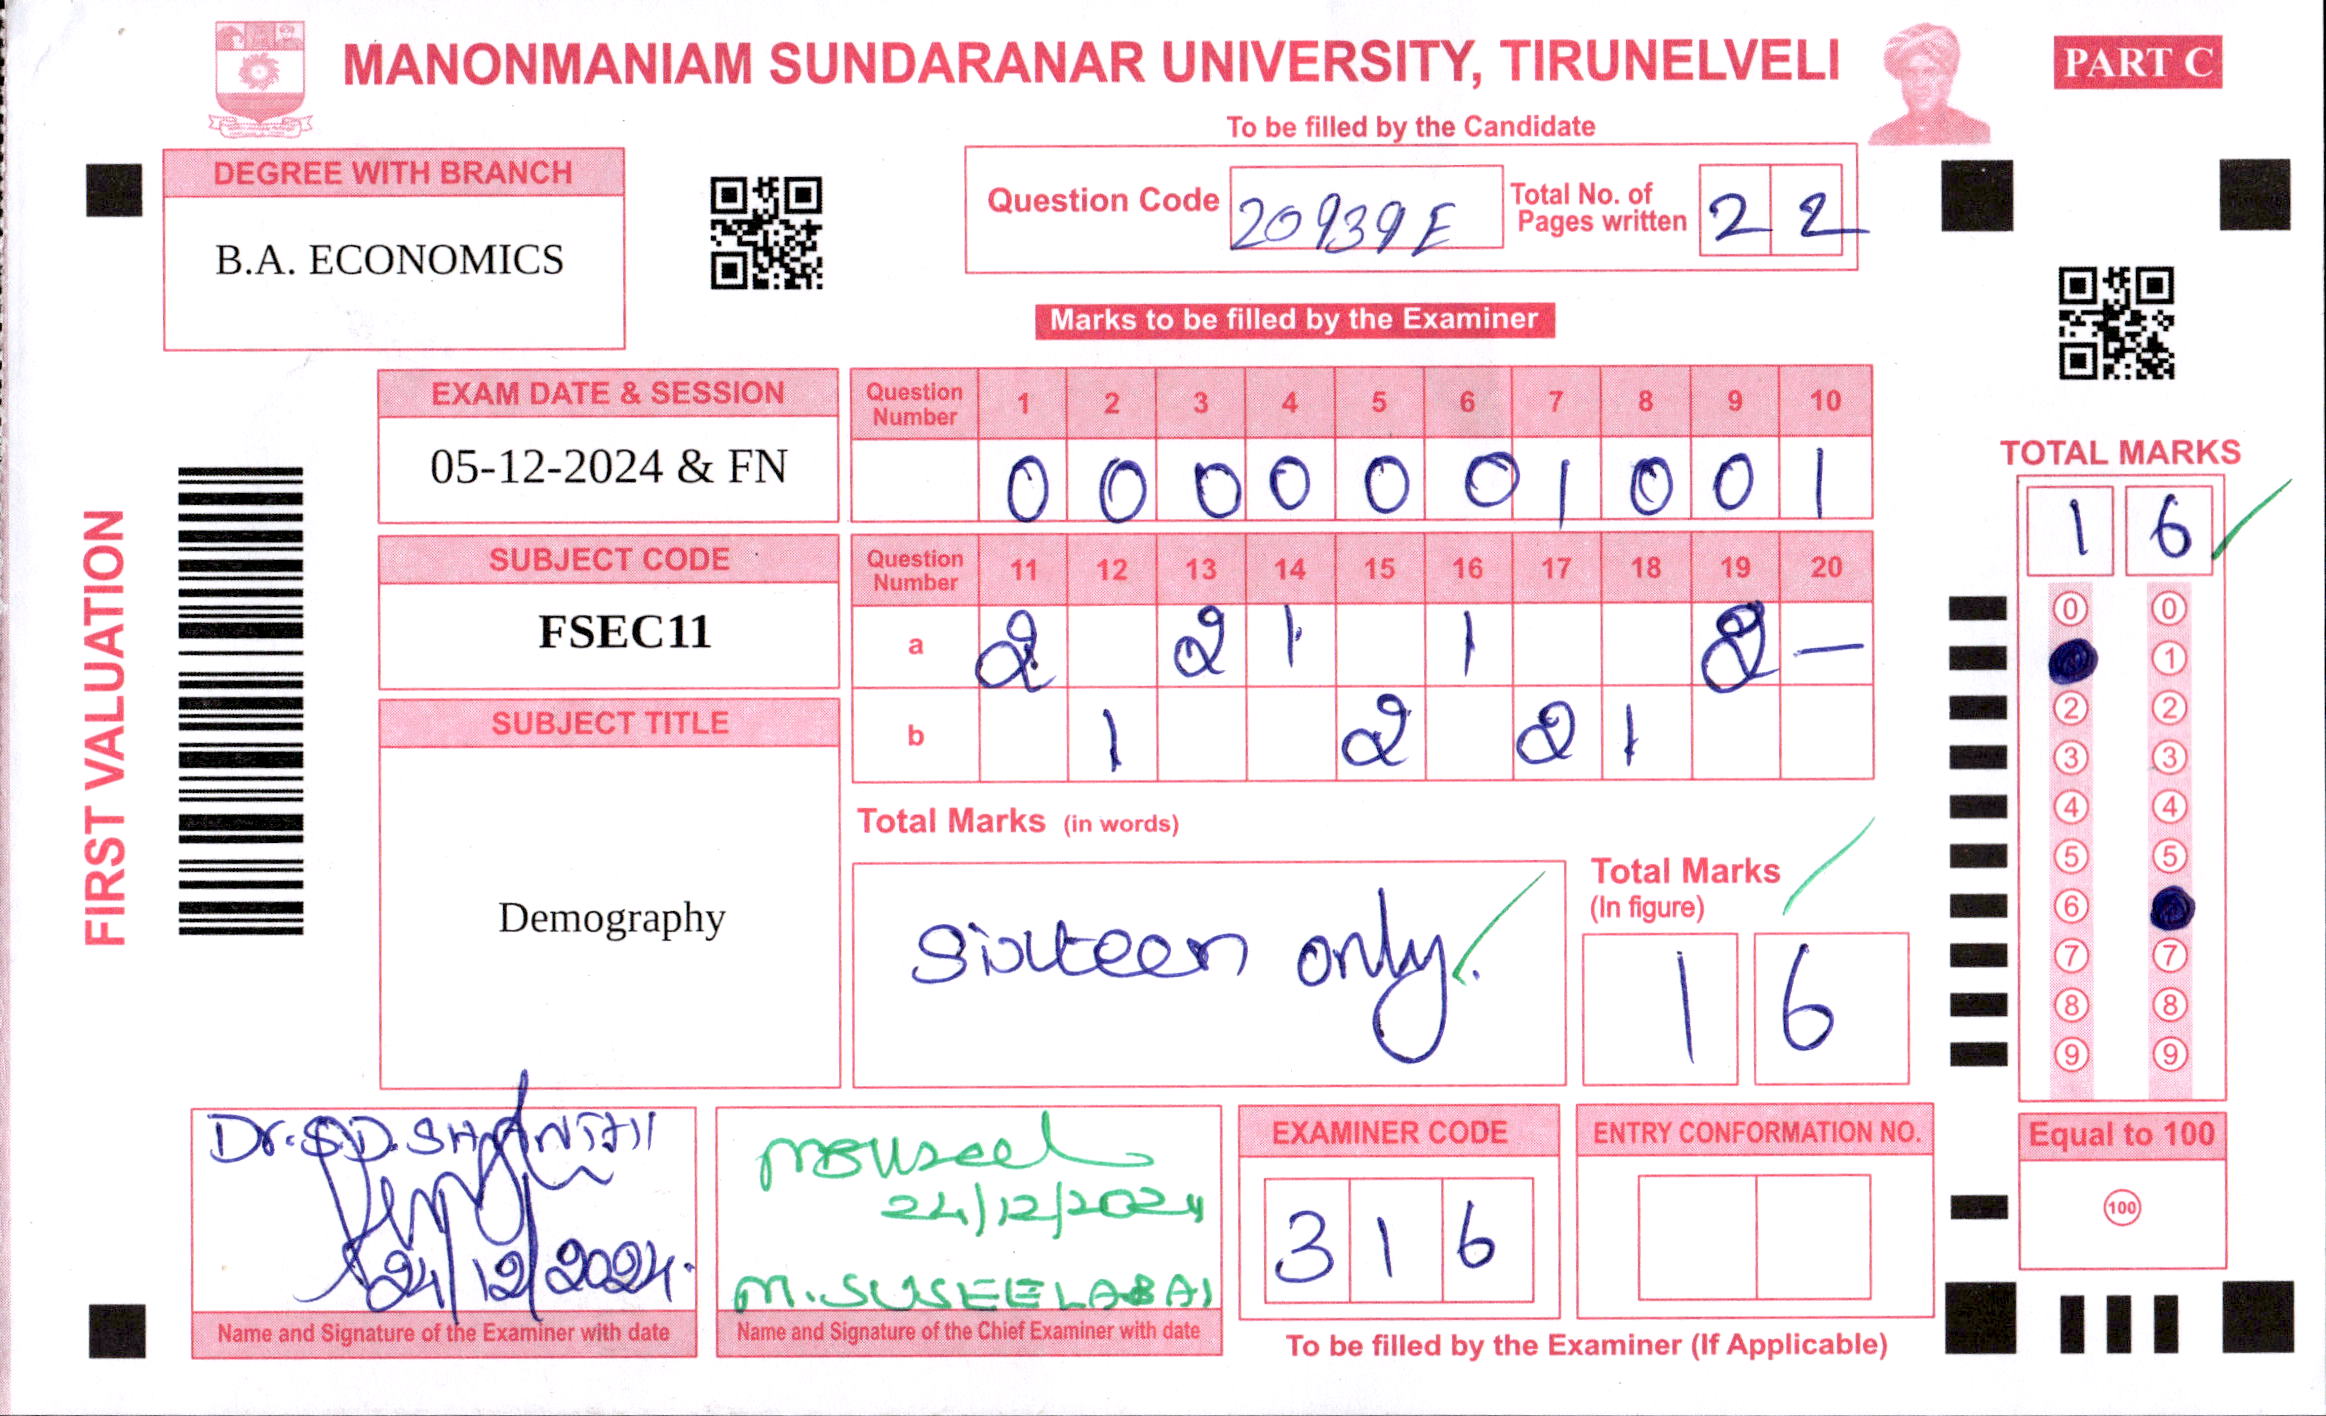 MANONMANIAM SUNDARANAR UNIVERSITY, TIRUNELVELI
PART C
To be filled by the Candidate
DEGREE WITH BRANCH
B.A. ECONOMICS
Question Code 20939E Total No. of Pages written 2 2
Marks to be filled by the Examiner
EXAM DATE & SESSION
05-12-2024 & FN
Question Number 1 2 3 4 5 6 7 8 9 10
0 0 0 0 0 0 1 0 0 1
SUBJECT CODE
FSEC11
Question Number 11 12 13 14 15 16 17 18 19 20
a 2 2 1 1 2 —
b 1 2 2 1
SUBJECT TITLE
Demography
FIRST VALUATION
Total Marks (in words)
Sixteen only.
Total Marks
(In figure)
1 6
TOTAL MARKS
1 6
0 0
1
2 2
3 3
4 4
5 5
6
7 7
8 8
9 9
Equal to 100
100
24/12/2024.
Name and Signature of the Examiner with date
24/12/2024
M. SUSEELABAI
Name and Signature of the Chief Examiner with date
EXAMINER CODE
3 1 6
ENTRY CONFORMATION NO.
To be filled by the Examiner (If Applicable)